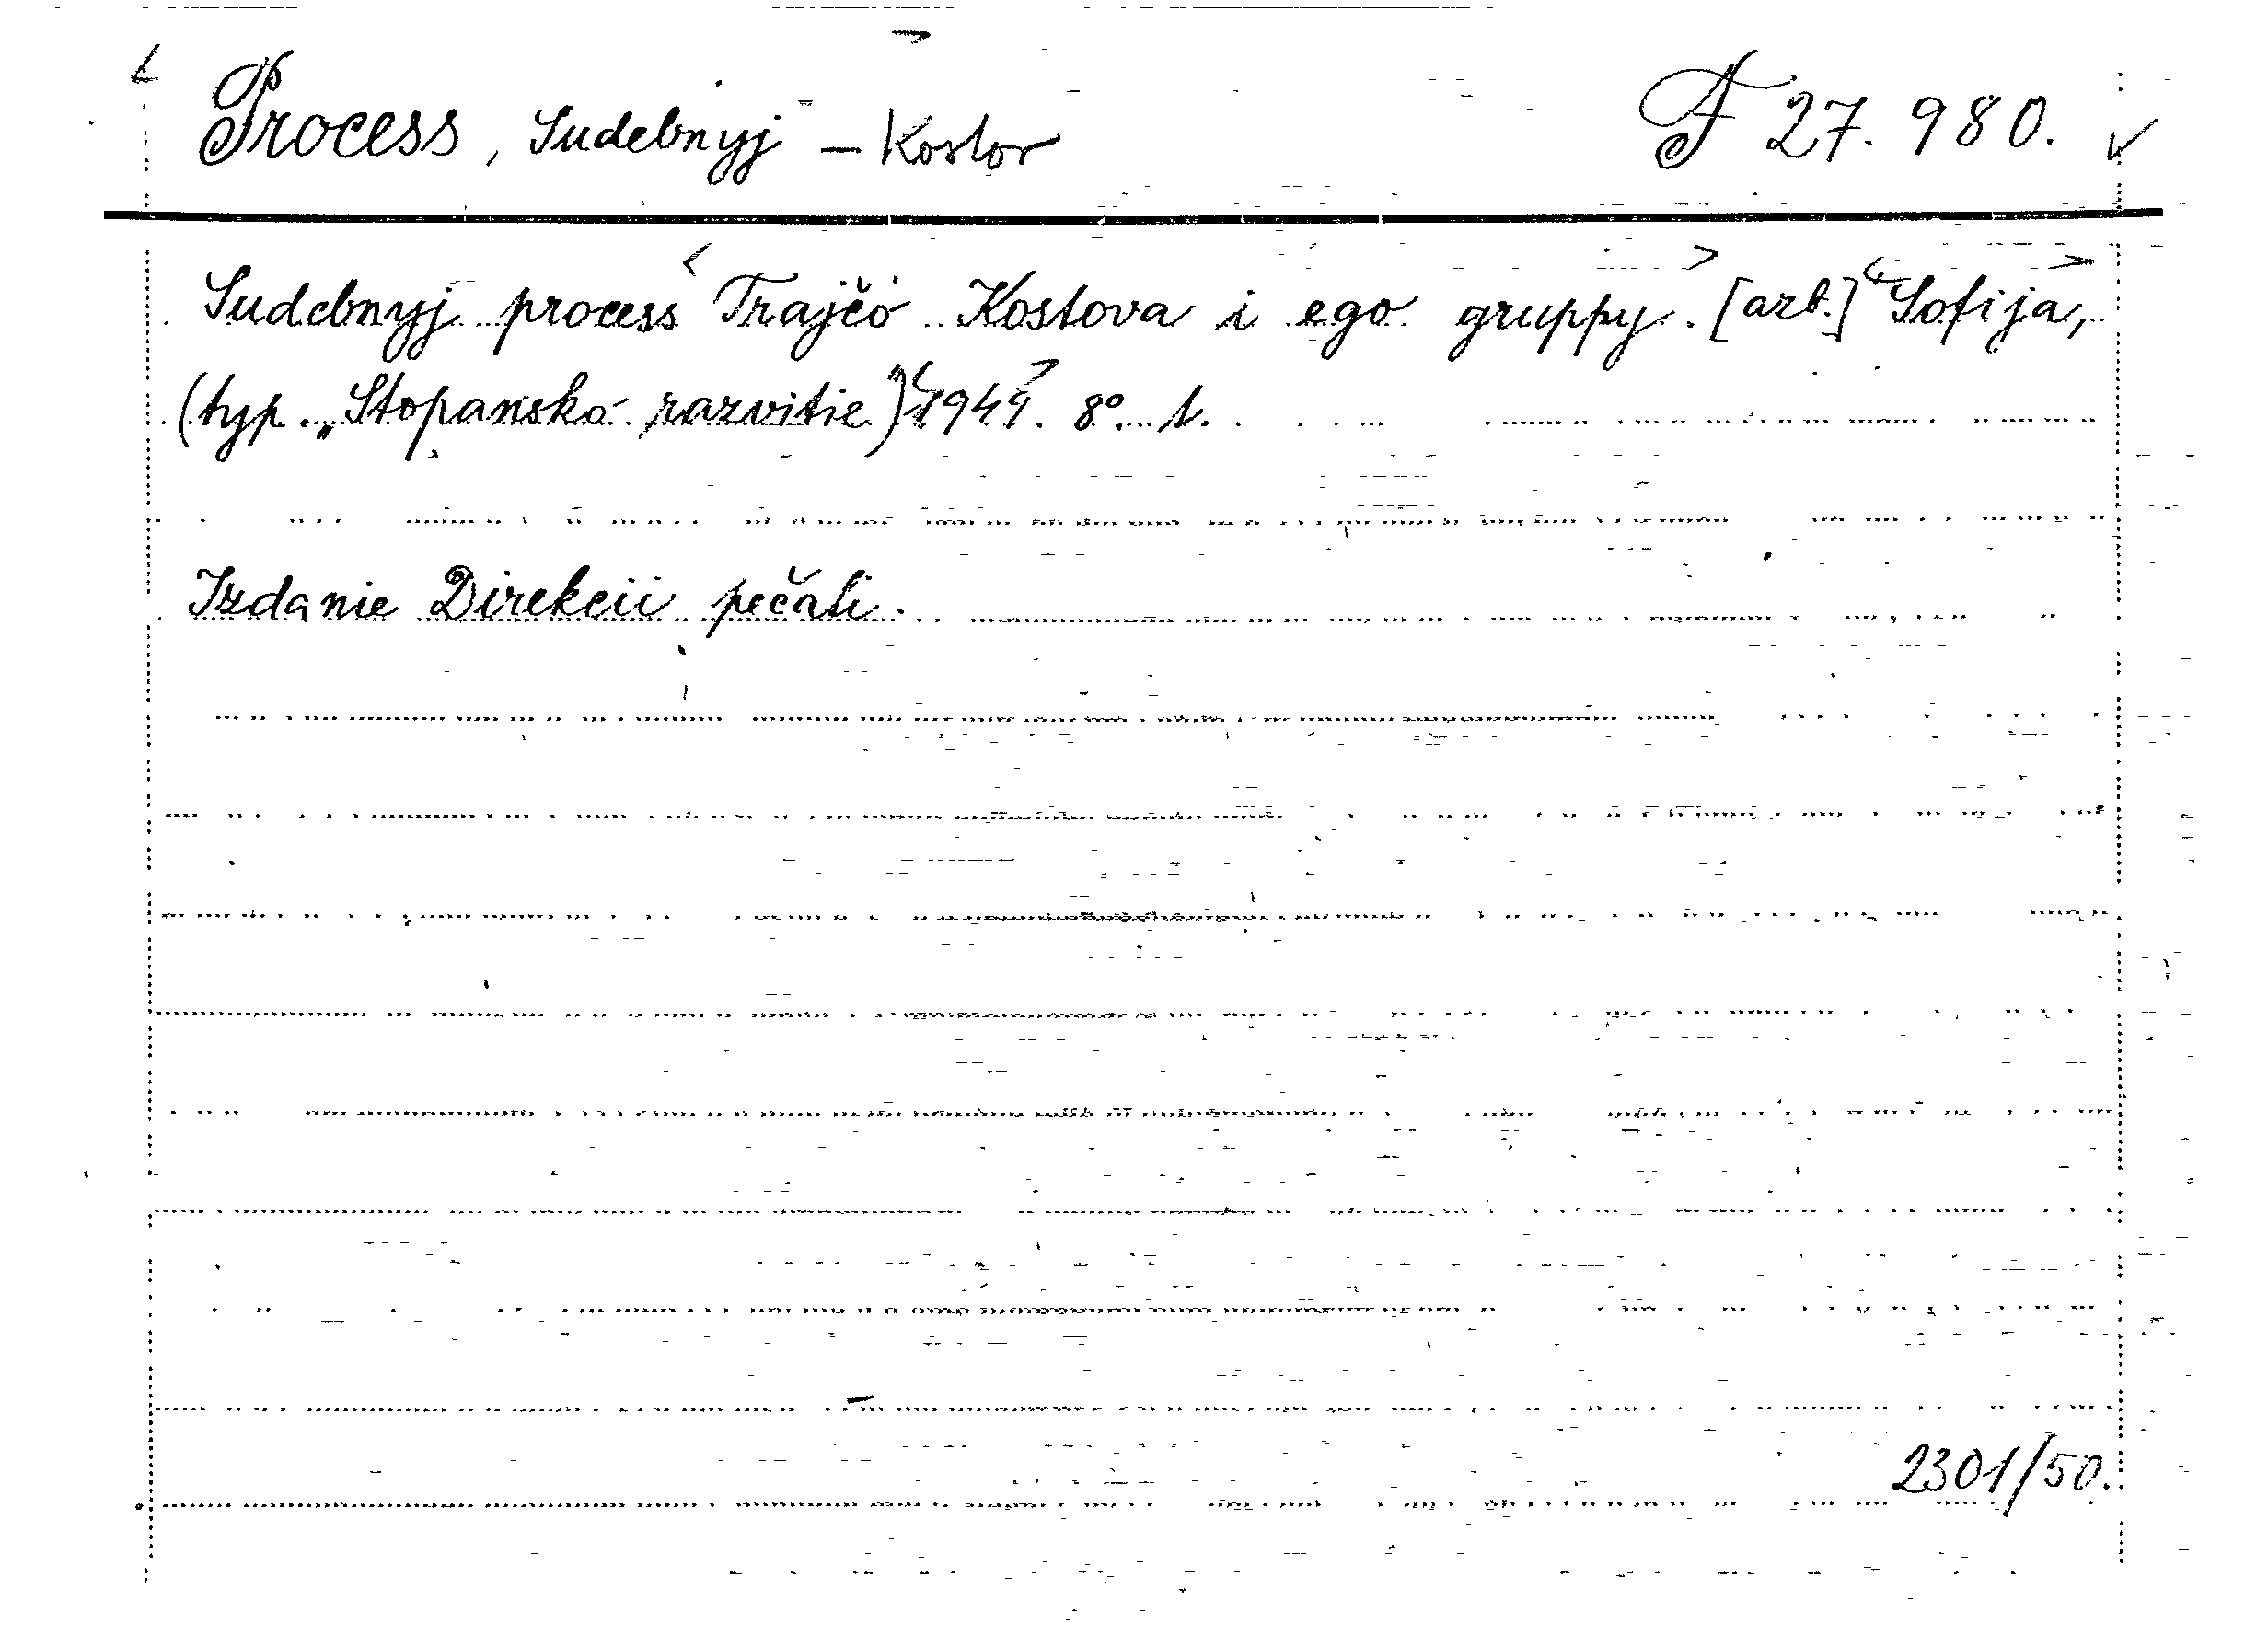 Process, Sudebnyj – Kostov F 27.980.
Sudebnyj process Trajčo Kostova i ego gruppy. [azb.] Sofija,
(typ. „Stopansko razvitie”) 1949. 8°. t.
Izdanie Direkcii pečati.
2301/50.